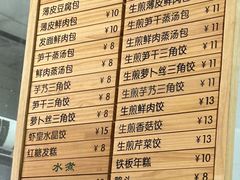 薄皮豆腐包 ¥8
薄皮鲜肉包 ¥8
发面鲜肉包 ¥8
笋干蒸汤包 ¥8
鲜肉蒸汤包 ¥8
芋乃三角饺 ¥8
笋干三角饺 ¥8
萝卜丝三角饺 ¥8
虾皇水晶饺 ¥15
红糖发糕 ¥8
水煮
生煎薄皮鲜肉包
生煎鲜肉汤包
生煎笋干汤包
生煎笋干三角饺 ¥11
生煎萝卜丝三角饺 ¥11
生煎芋乃三角饺 ¥11
生煎鲜肉饺 ¥11
生煎香菇饺 ¥11
生煎芹菜饺 ¥11
铁板年糕 ¥10